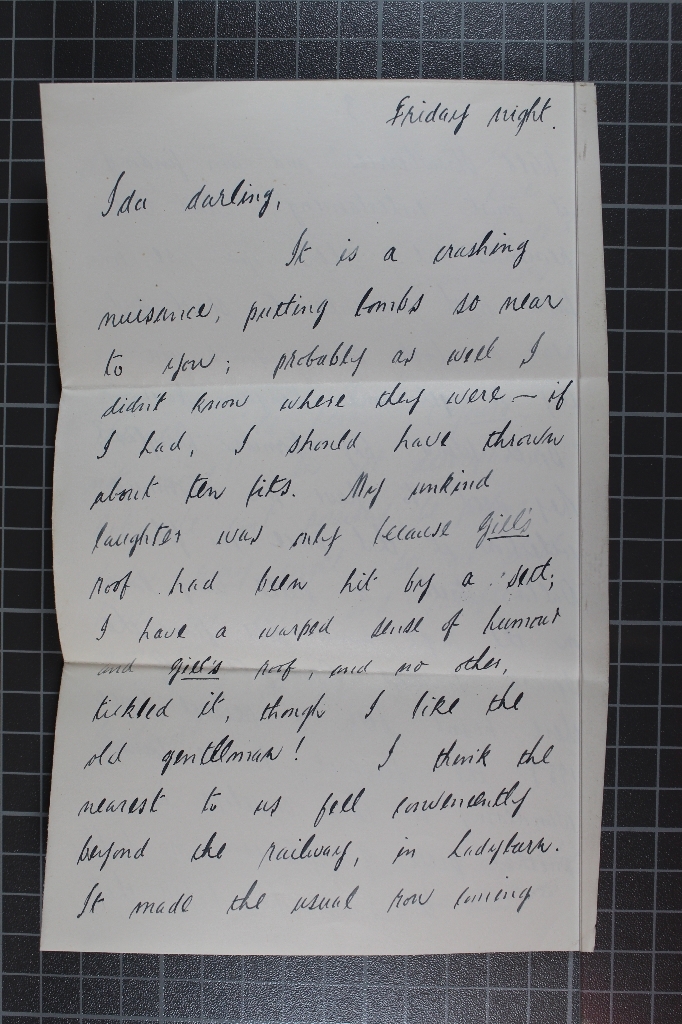 Friday night.
Ida darling,
It is a crashing
nuisance, putting bombs so near
to you; probably as well I
didn't know where they were — if
I had, I should have thrown
about ten fits. My unkind
laughter was only because Gill's
roof had been hit by a
I have a warped sense of humour
and Gill's roof, and no other,
tickled it, though I like the
old gentleman! I think the
nearest to us fell conveniently
beyond the railway, in Ladybarn.
It made the usual row coming